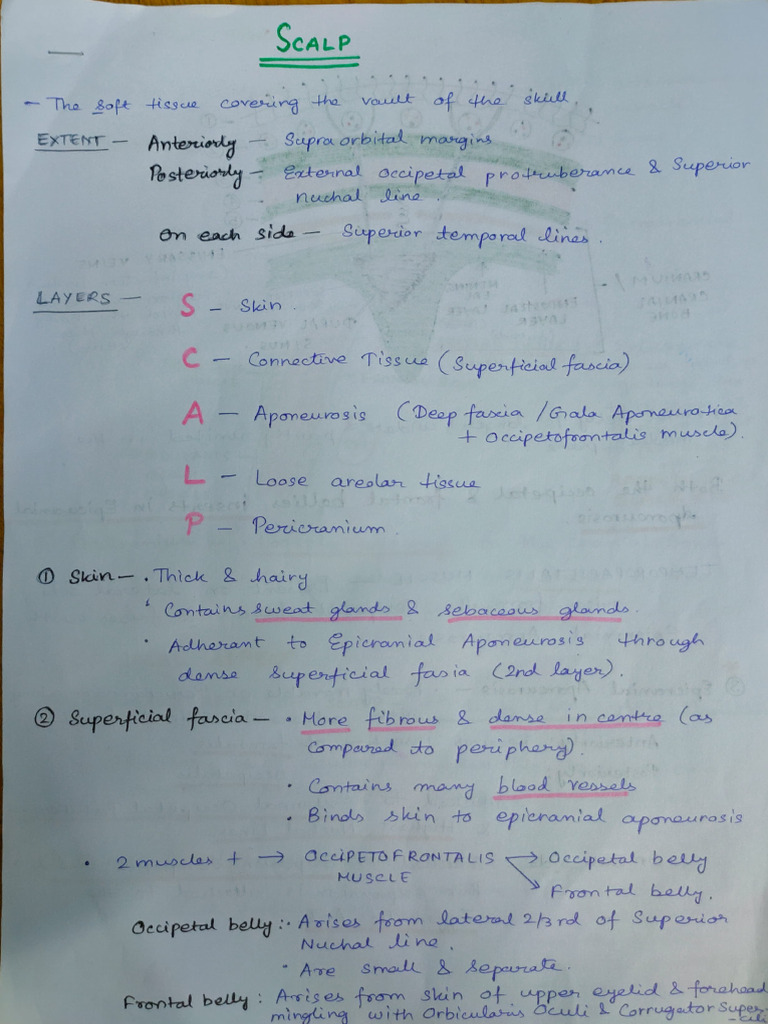 SCALP
- The soft tissue covering the vault of the skull.
EXTENT - Anteriorly - Supraorbital margins
Posteriorly - External Occipetal protruberance & Superior
nuchal line.
On each side - Superior temporal lines.
LAYERS - S - Skin.
C - Connective Tissue (Superficial fascia)
A - Aponeurosis (Deep fascia / Gala Aponeurotica
+ Occipetofrontalis muscle).
L - Loose areolar tissue
P - Pericranium.
① Skin - • Thick & hairy
• Contains sweat glands & sebaceous glands.
• Adherant to Epicranial Aponeurosis through
dense superficial fasia (2nd layer).
② Superficial fascia - • More fibrous & dense in centre (as
compared to periphery).
• Contains many blood vessels
• Binds skin to epicranial aponeurosis
• 2 muscles + → OCCIPETOFRONTALIS → Occipetal belly
MUSCLE → Frontal belly.
Occipetal belly :• Arises from lateral 2/3rd of Superior
Nuchal line.
• Are small & separate.
Frontal belly : Arises from skin of upper eyelid & forehead
mingling with Orbicularis Oculi & Corrugator Super-
-cili